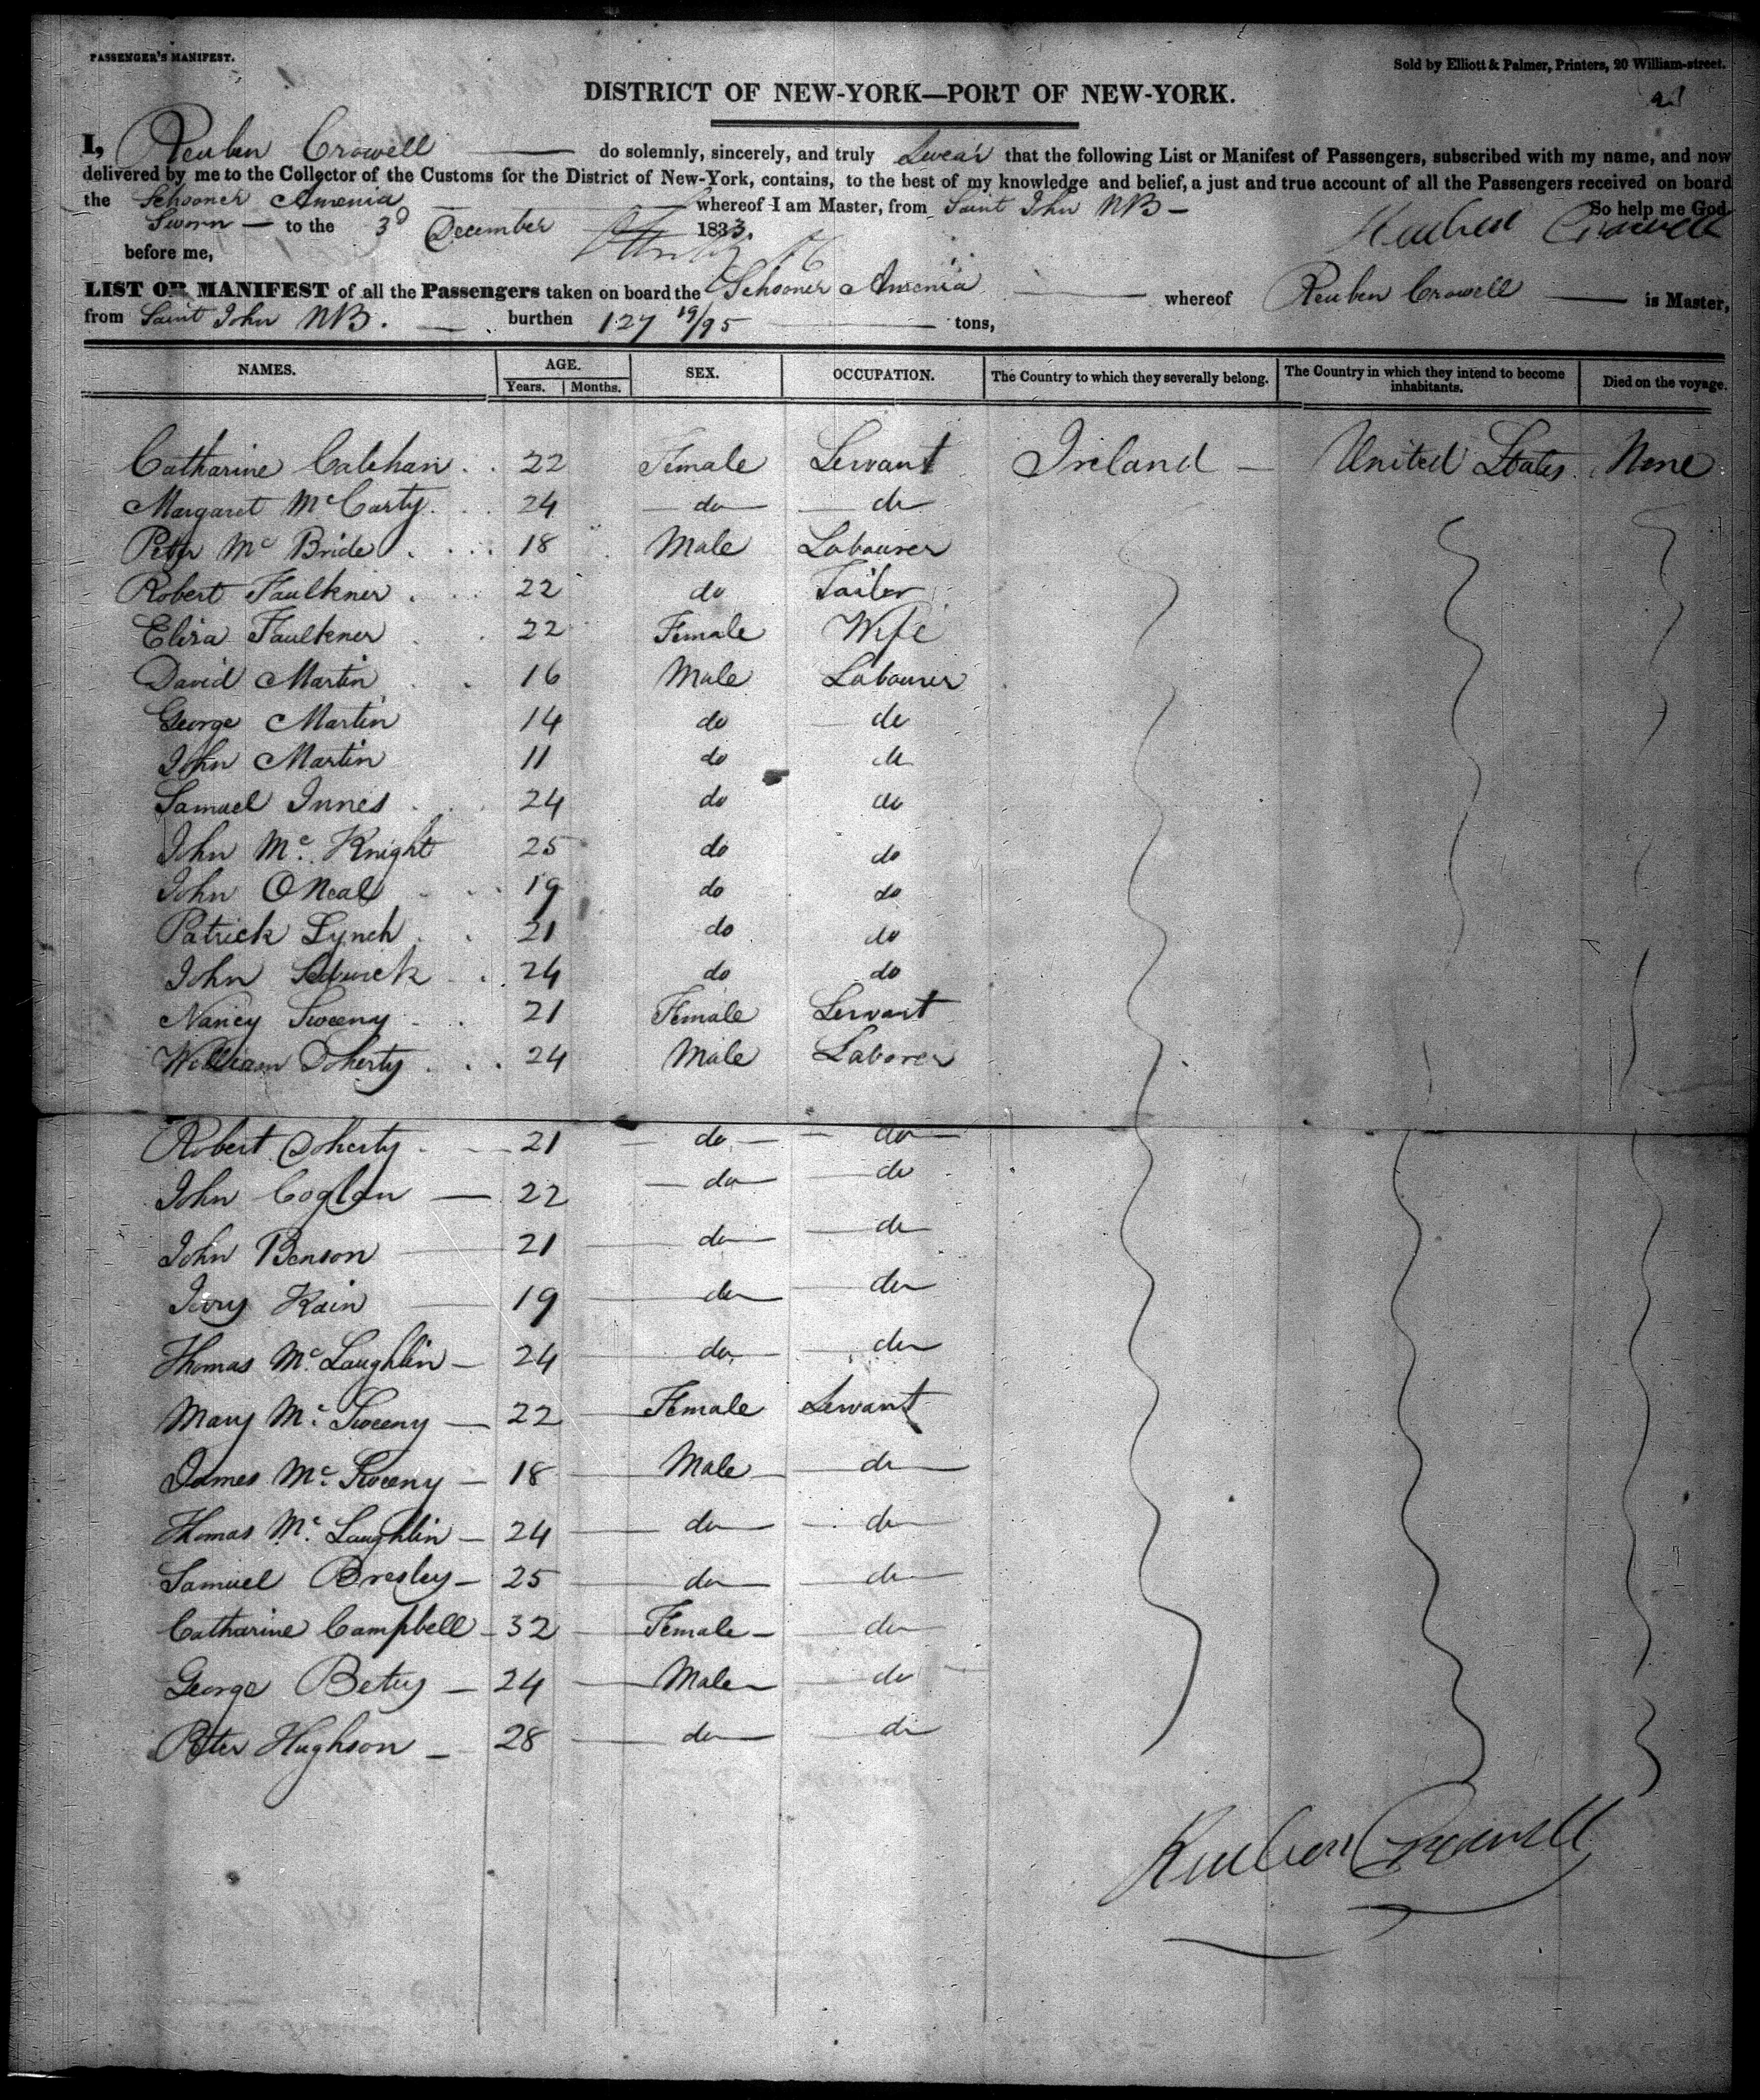 PASSENGER'S MANIFEST.
Sold by Elliott & Palmer, Printers, 20 William-street.
DISTRICT OF NEW-YORK—PORT OF NEW-YORK.
I, Reuben Crowell do solemnly, sincerely, and truly Swear that the following List or Manifest of Passengers, subscribed with my name, and now
delivered by me to the Collector of the Customs for the District of New-York, contains, to the best of my knowledge and belief, a just and true account of all the Passengers received on board
the Schooner Amenia whereof I am Master, from Saint John NB — So help me God.
Sworn — to the 3d December 1833. Reuben Crowell
before me,
LIST OR MANIFEST of all the Passengers taken on board the Schooner Amenia whereof Reuben Crowell is Master,
from Saint John NB. burthen 127 19/95 tons,
NAMES. AGE. SEX. OCCUPATION. The Country to which they severally belong. The Country in which they intend to become inhabitants. Died on the voyage.
Years. Months.
Catharine Calehan 22 Female Servant Ireland — United States None
Margaret McCarty 24 do do
Peter Mc Bride 18 Male Labourer
Robert Faulkner 22 do Tailor
Eliza Faulkner 22 Female Wife
David Martin 16 Male Labourer
George Martin 14 do do
John Martin 11 do do
Samuel Innes 24 do do
John Mc Knight 25 do do
John ONeal 19 do do
Patrick Lynch 21 do do
John Sedwick 24 do do
Nancy Sweeny 21 Female Servant
William Doherty 24 Male Laborer
Robert Doherty 21 do do
John Coglan 22 do do
John Benson 21 do do
Kain 19 do do
Thomas Mc Laughlin 24 do do
Mary Mc Sweeny 22 Female Servant
James Mc Sweeny 18 Male do
Thomas Mc Laughlin 24 do do
Samuel Bresley 25 do do
Catharine Campbell 32 Female do
George Betus 24 Male do
Peter Hughson 28 do do
Reuben Crowell